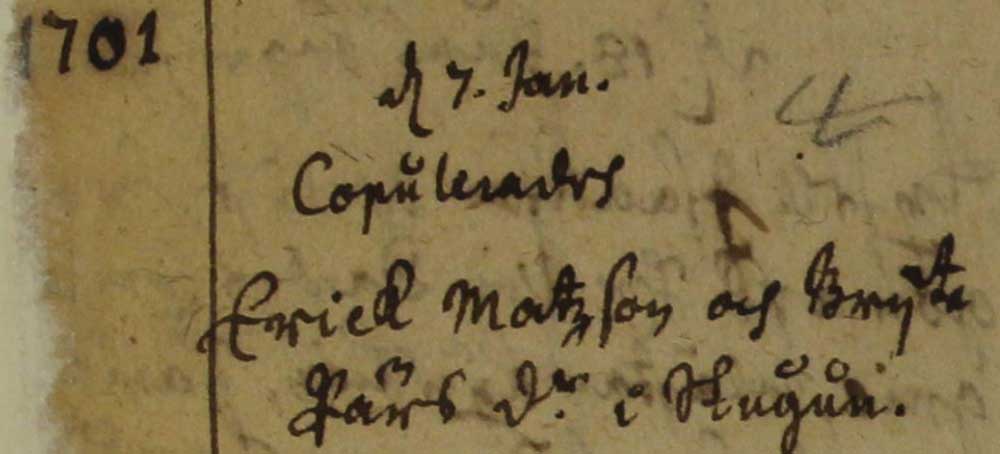 1701
d. 7. Jan.
Copulerades
Erick Matzson och Bryta
Pärs dr. i Stugun.